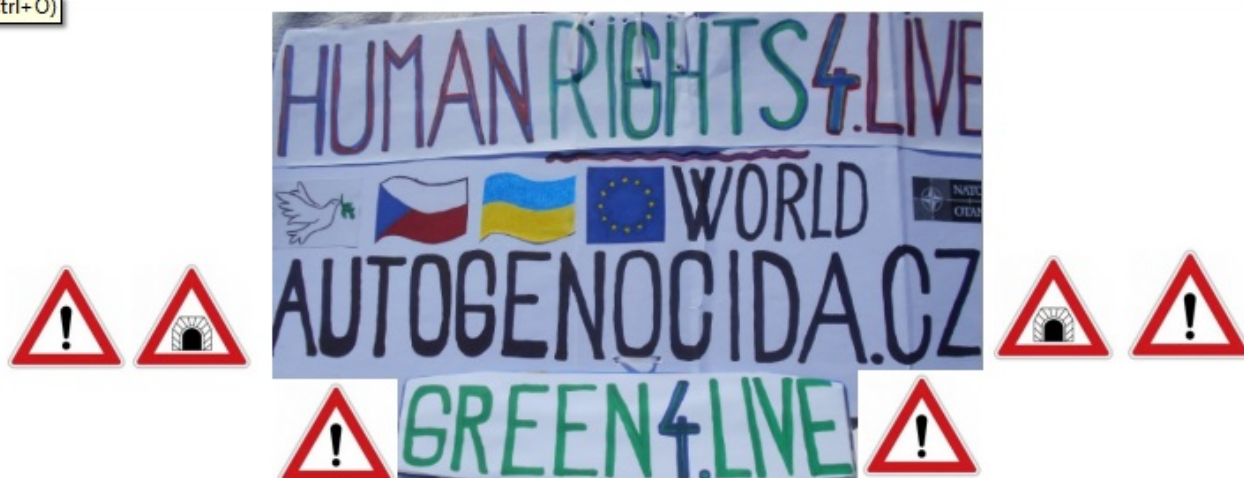 trl+O)
HUMAN RIGHTS4.LIVE
WORLD
NATO
OTAN
AUTOGENOCIDA.CZ
GREEN4.LIVE